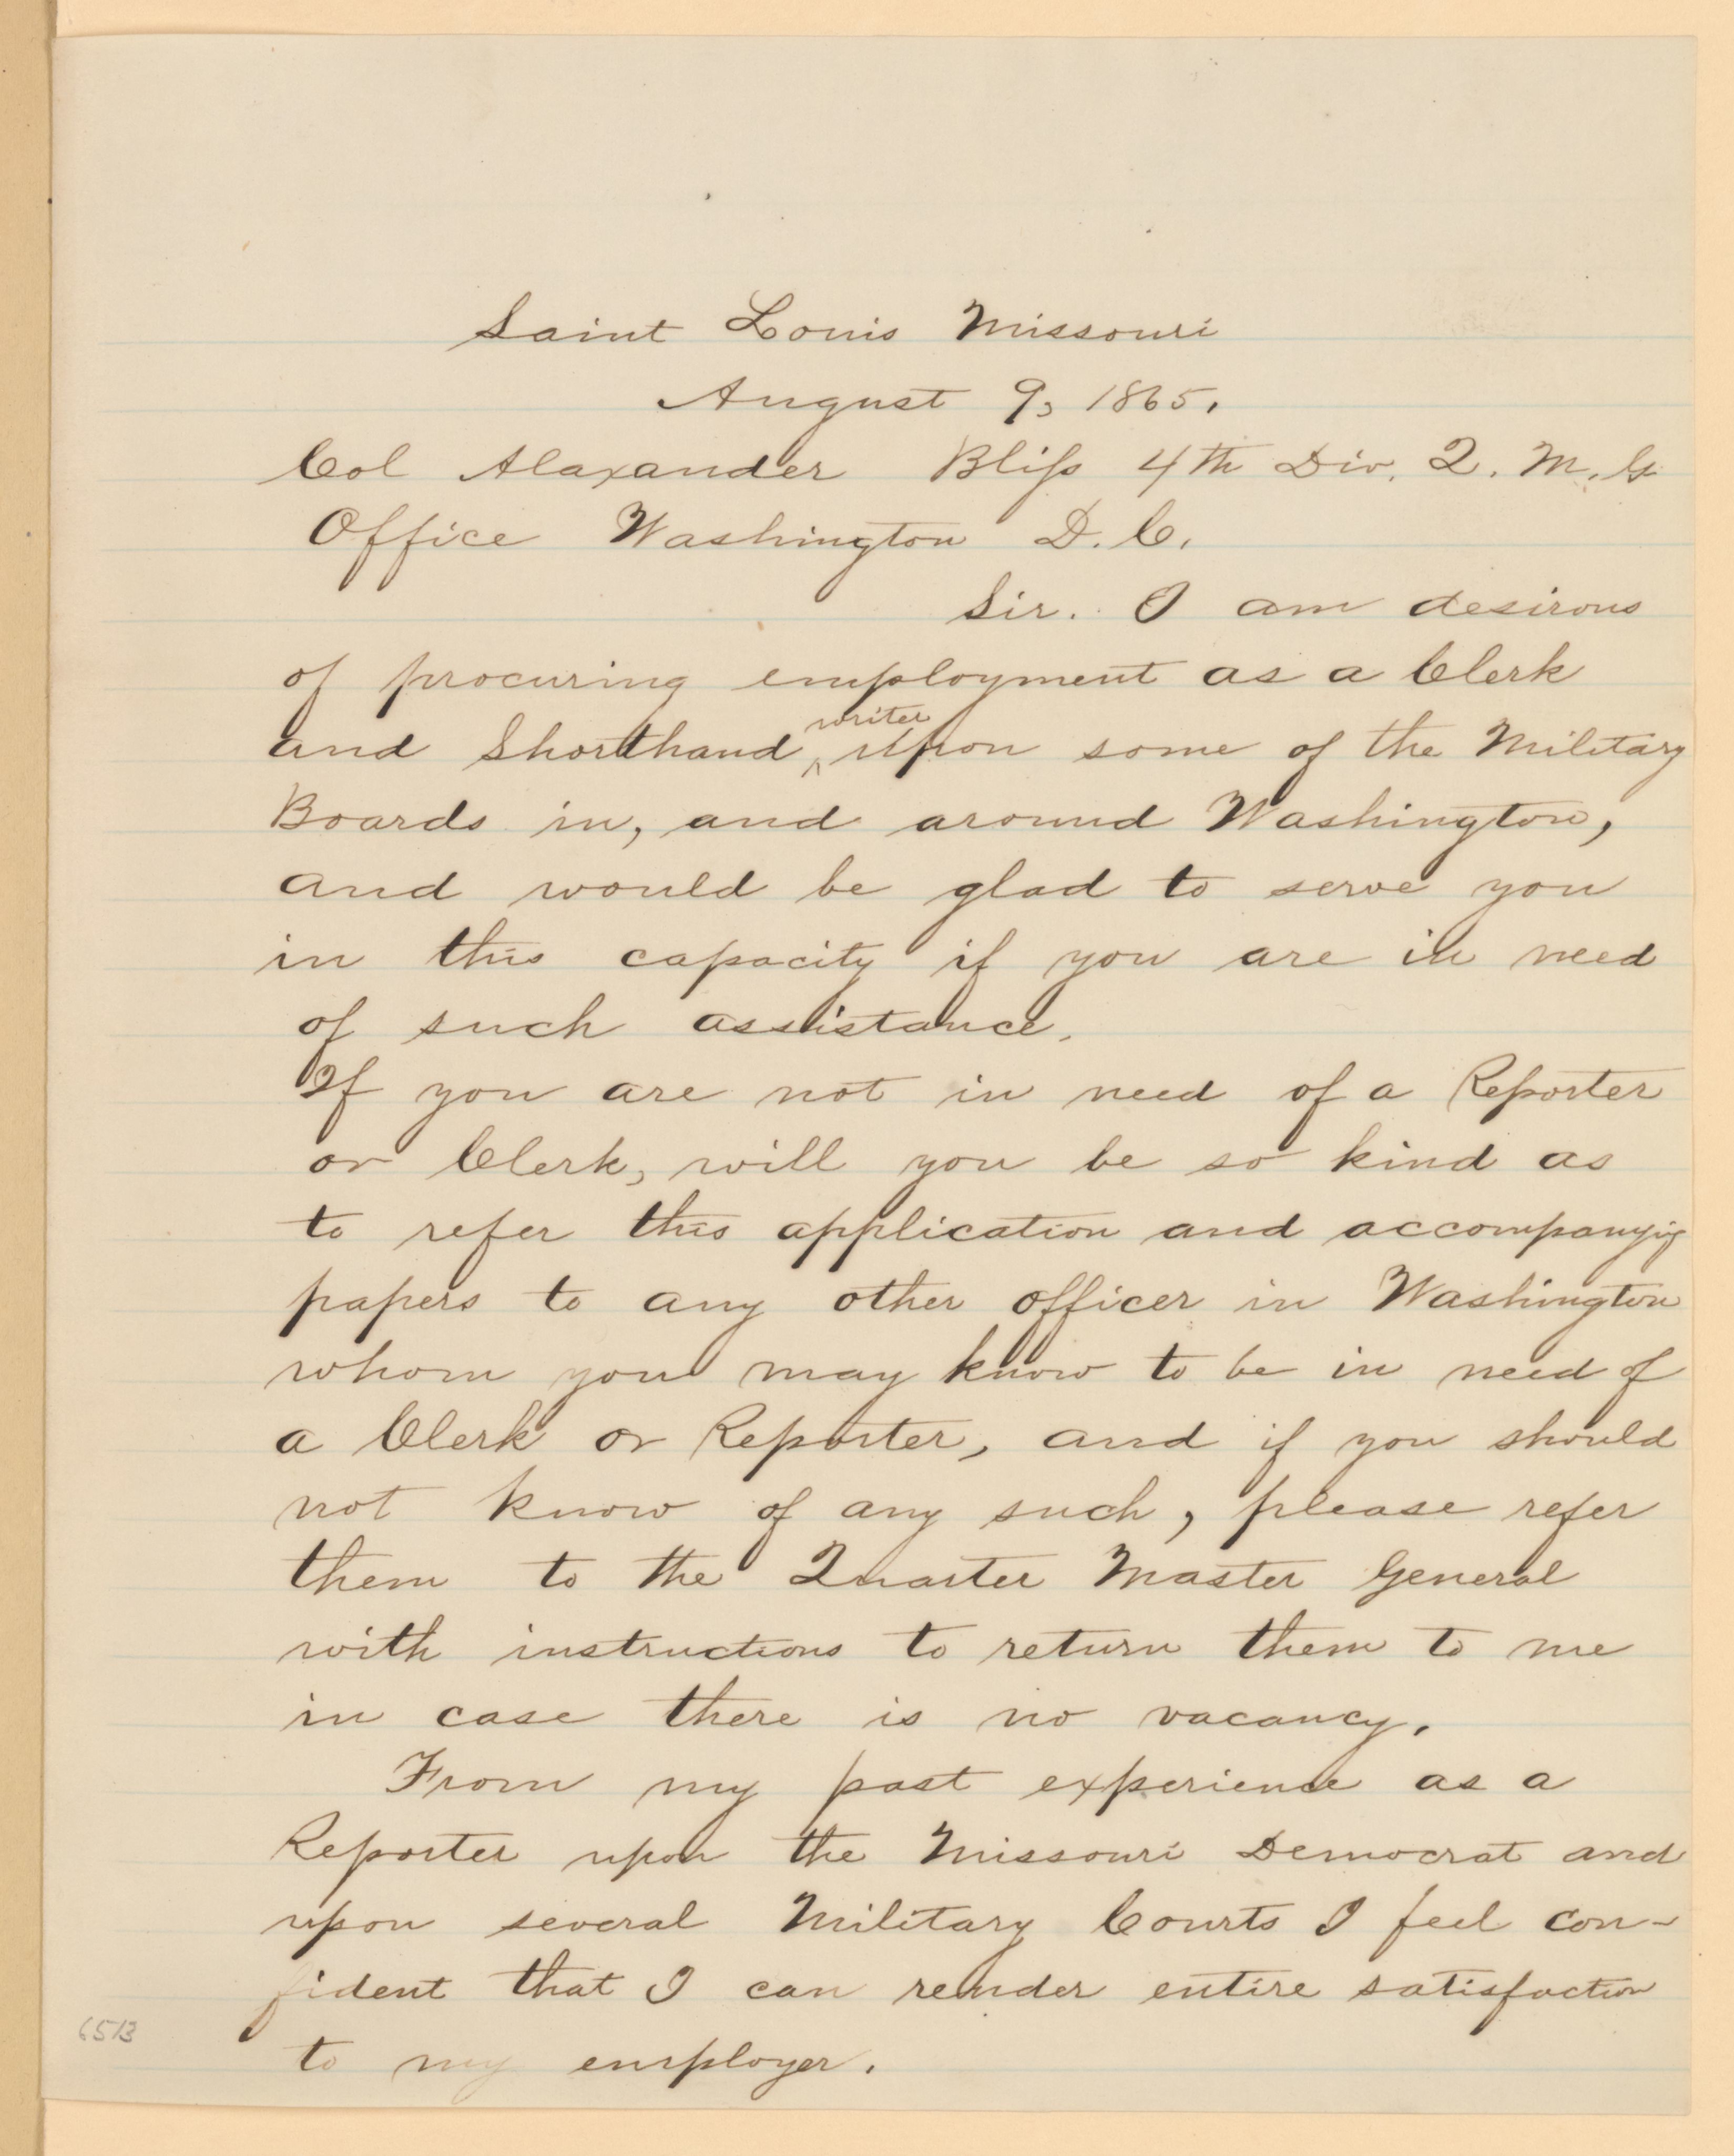 Saint Louis Missouri
August 9, 1865.
Col Alaxander Bliss 4th Div. Q. M. G
Office Washington D. C.
Sir. I am desirous
of procuring employment as a Clerk
writer
and Shorthand ^ upon some of the Military
Boards in, and around Washington,
and would be glad to serve you
in this capacity if you are in need
of such assistance.
If you are not in need of a Reporter
or Clerk, will you be so kind as
to refer this application and accompanyig
papers to any other officer in Washington
whom you may know to be in need of
a Clerk or Reporter, and if you should
not know of any such, please refer
them to the Quarter Master General
with instructions to return them to me
in case there is no vacancy.
From my past experience as a
Reporter upon the Missouri Democrat and
upon several Military Courts I feel con-
fident that I can render entire satisfaction
to my employer.
6513